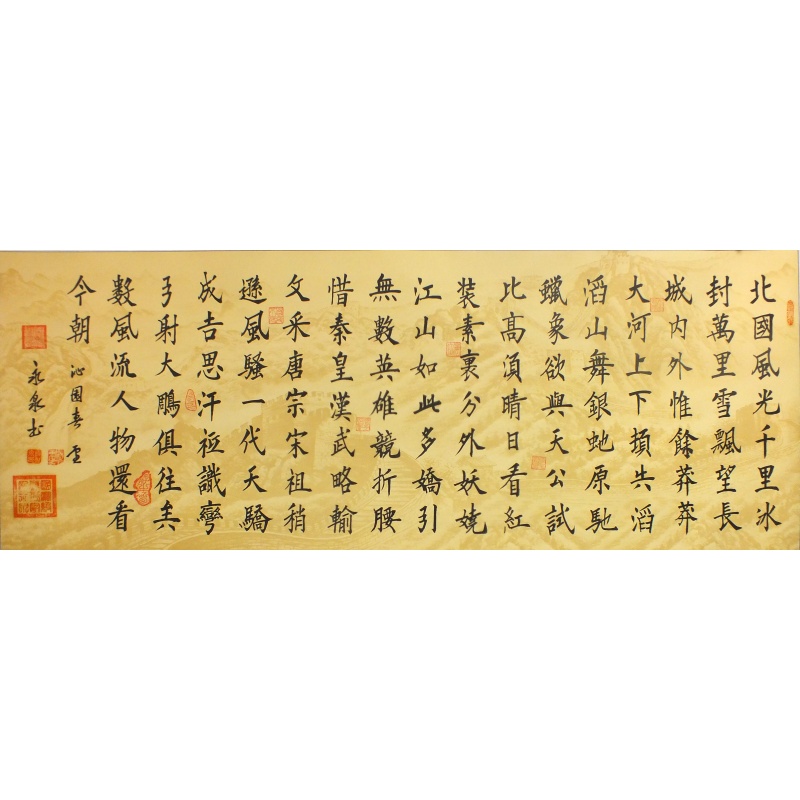 北國風光千里冰
封萬里雪飄望長
城内外惟餘莽莽
大河上下頓失滔
滔山舞銀蛇原馳
蠟象欲與天公試
比高須晴日看紅
装素裹分外妖嬈
江山如此多嬌引
無數英雄競折腰
惜秦皇漢武略輸
文采唐宗宋祖稍
遜風騷一代天驕
成吉思汗祗識彎
弓射大鵰俱往矣
數風流人物還看
今朝
沁園春雪
永泉书